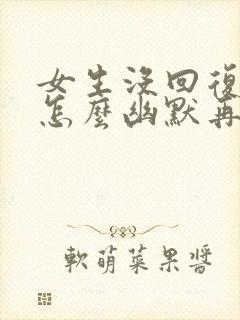 女生沒回復
怎麼幽默再
軟萌菜果醬